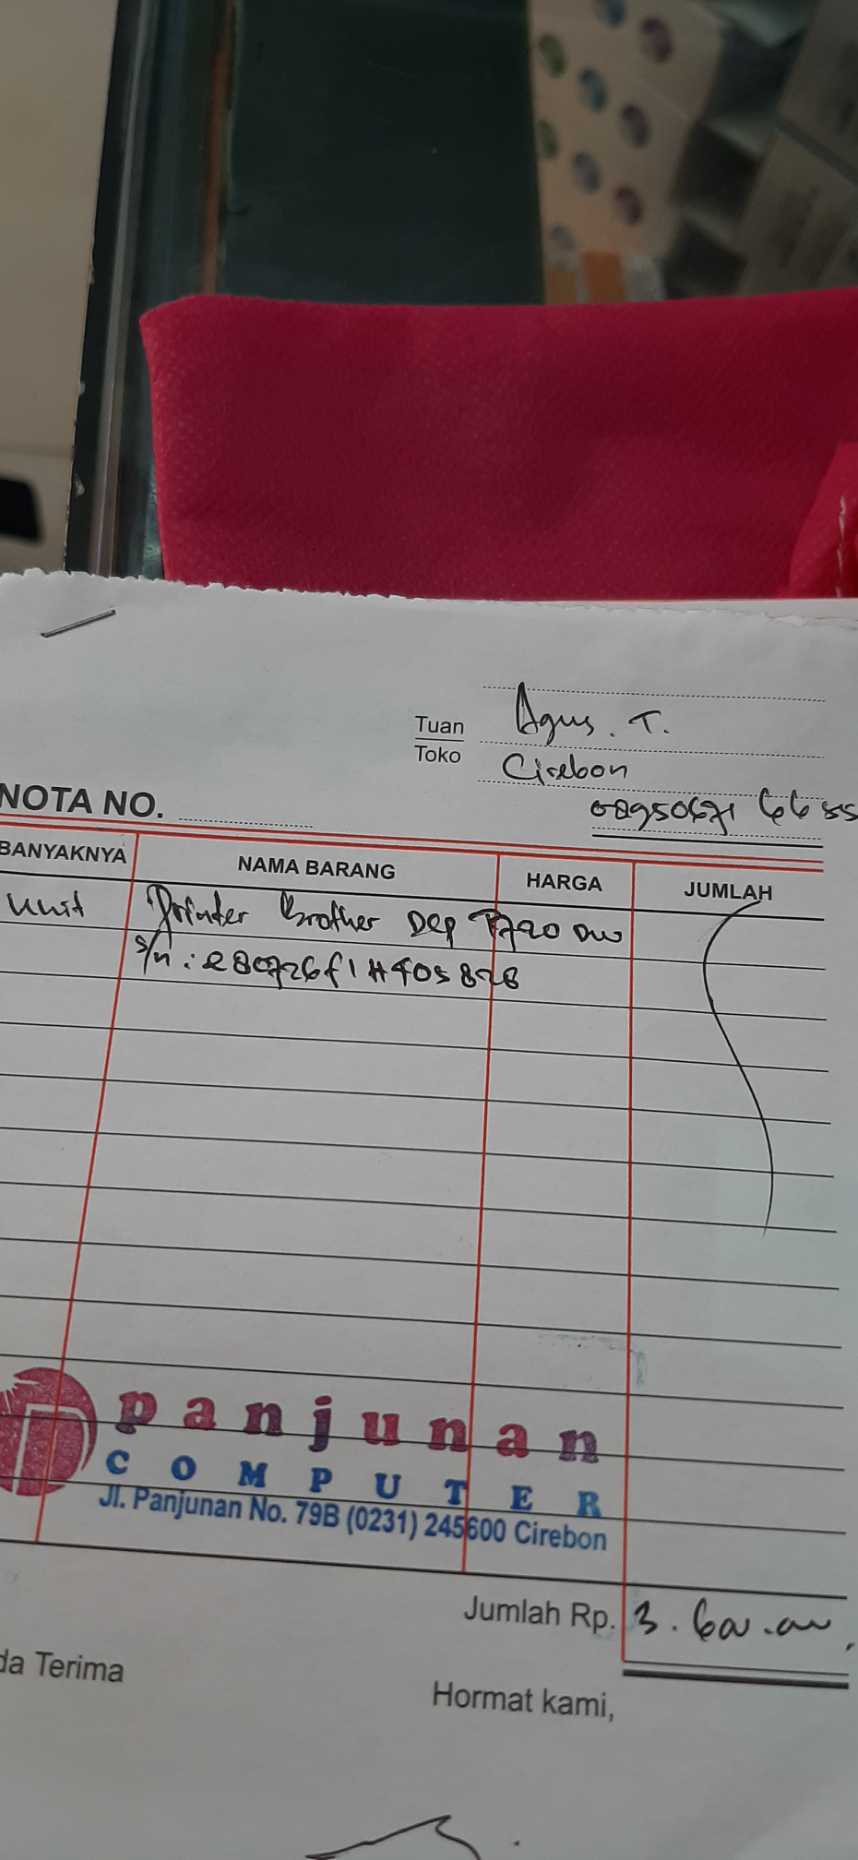 Agus. T.
Tuan
Toko
Cirebon
NOTA NO.
BANYAKNYA NAMA BARANG HARGA JUMLAH
unit Printer Brother Dcp T720 DW
S/n :
panjunan
COMPUTER
Jl. Panjunan No. 79B (0231) 245600 Cirebon
Jumlah Rp. 3.600.000
da Terima
Hormat kami,